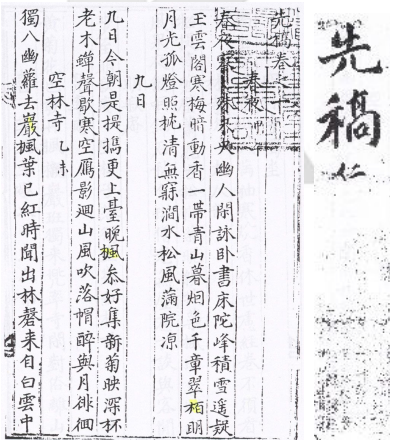 先稿 仁
先稿卷之
春夜
春夜未央幽人閑詠卧書床陀峰積雪遥疑
玉雲閣寒梅暗動香一帶青山暮烟色千章翠栢明
月光孤燈照枕清無寐澗水松風滿院凉
九日
九日今朝是提携更上臺晚楓叅好集新菊映深杯
老木蟬聲歇寒空鴈影廻山風吹落帽醉與月徘徊
空林寺 乙未
獨入幽蘿去巖楓葉已紅時聞出林磬来自白雲中